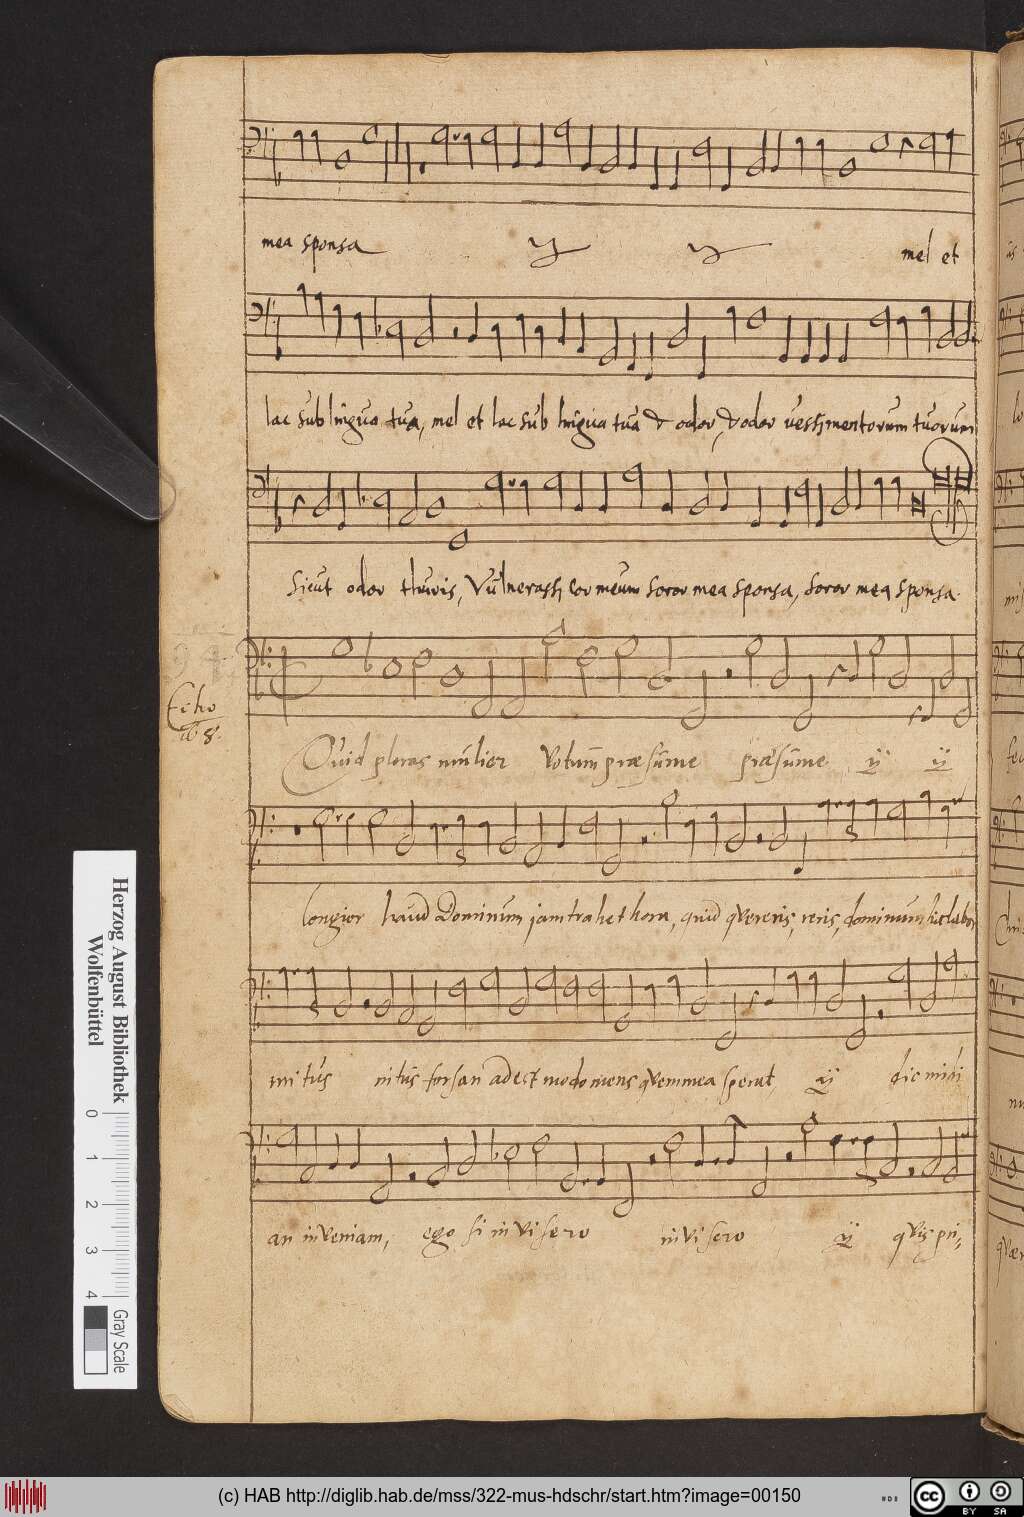 mea sponsa ij ij mel et
lac sub lingua tua, mel et lac sub lingua tua & odor, & odor vestimentorum tuorum
Sicut odor thuris, Vulnerasti cor meum soror mea sponsa, soror mea sponsa.
Echo
ab 8.
Quid ploras mulier votum præsume præsume ij ij
longior haud Dominum jam trahet hora, quid quereris, reris, dominum hic labor
mitus nitus forsan adest modo mens quem mea sperat, ij dic mihi
an inveniam, ego si invisero invisero ij quis pri,
Herzog August Bibliothek
Wolfenbüttel
0 1 2 3 4
Gray Scale
(c) HAB http://diglib.hab.de/mss/322-mus-hdschr/start.htm?image=00150
cc BY SA